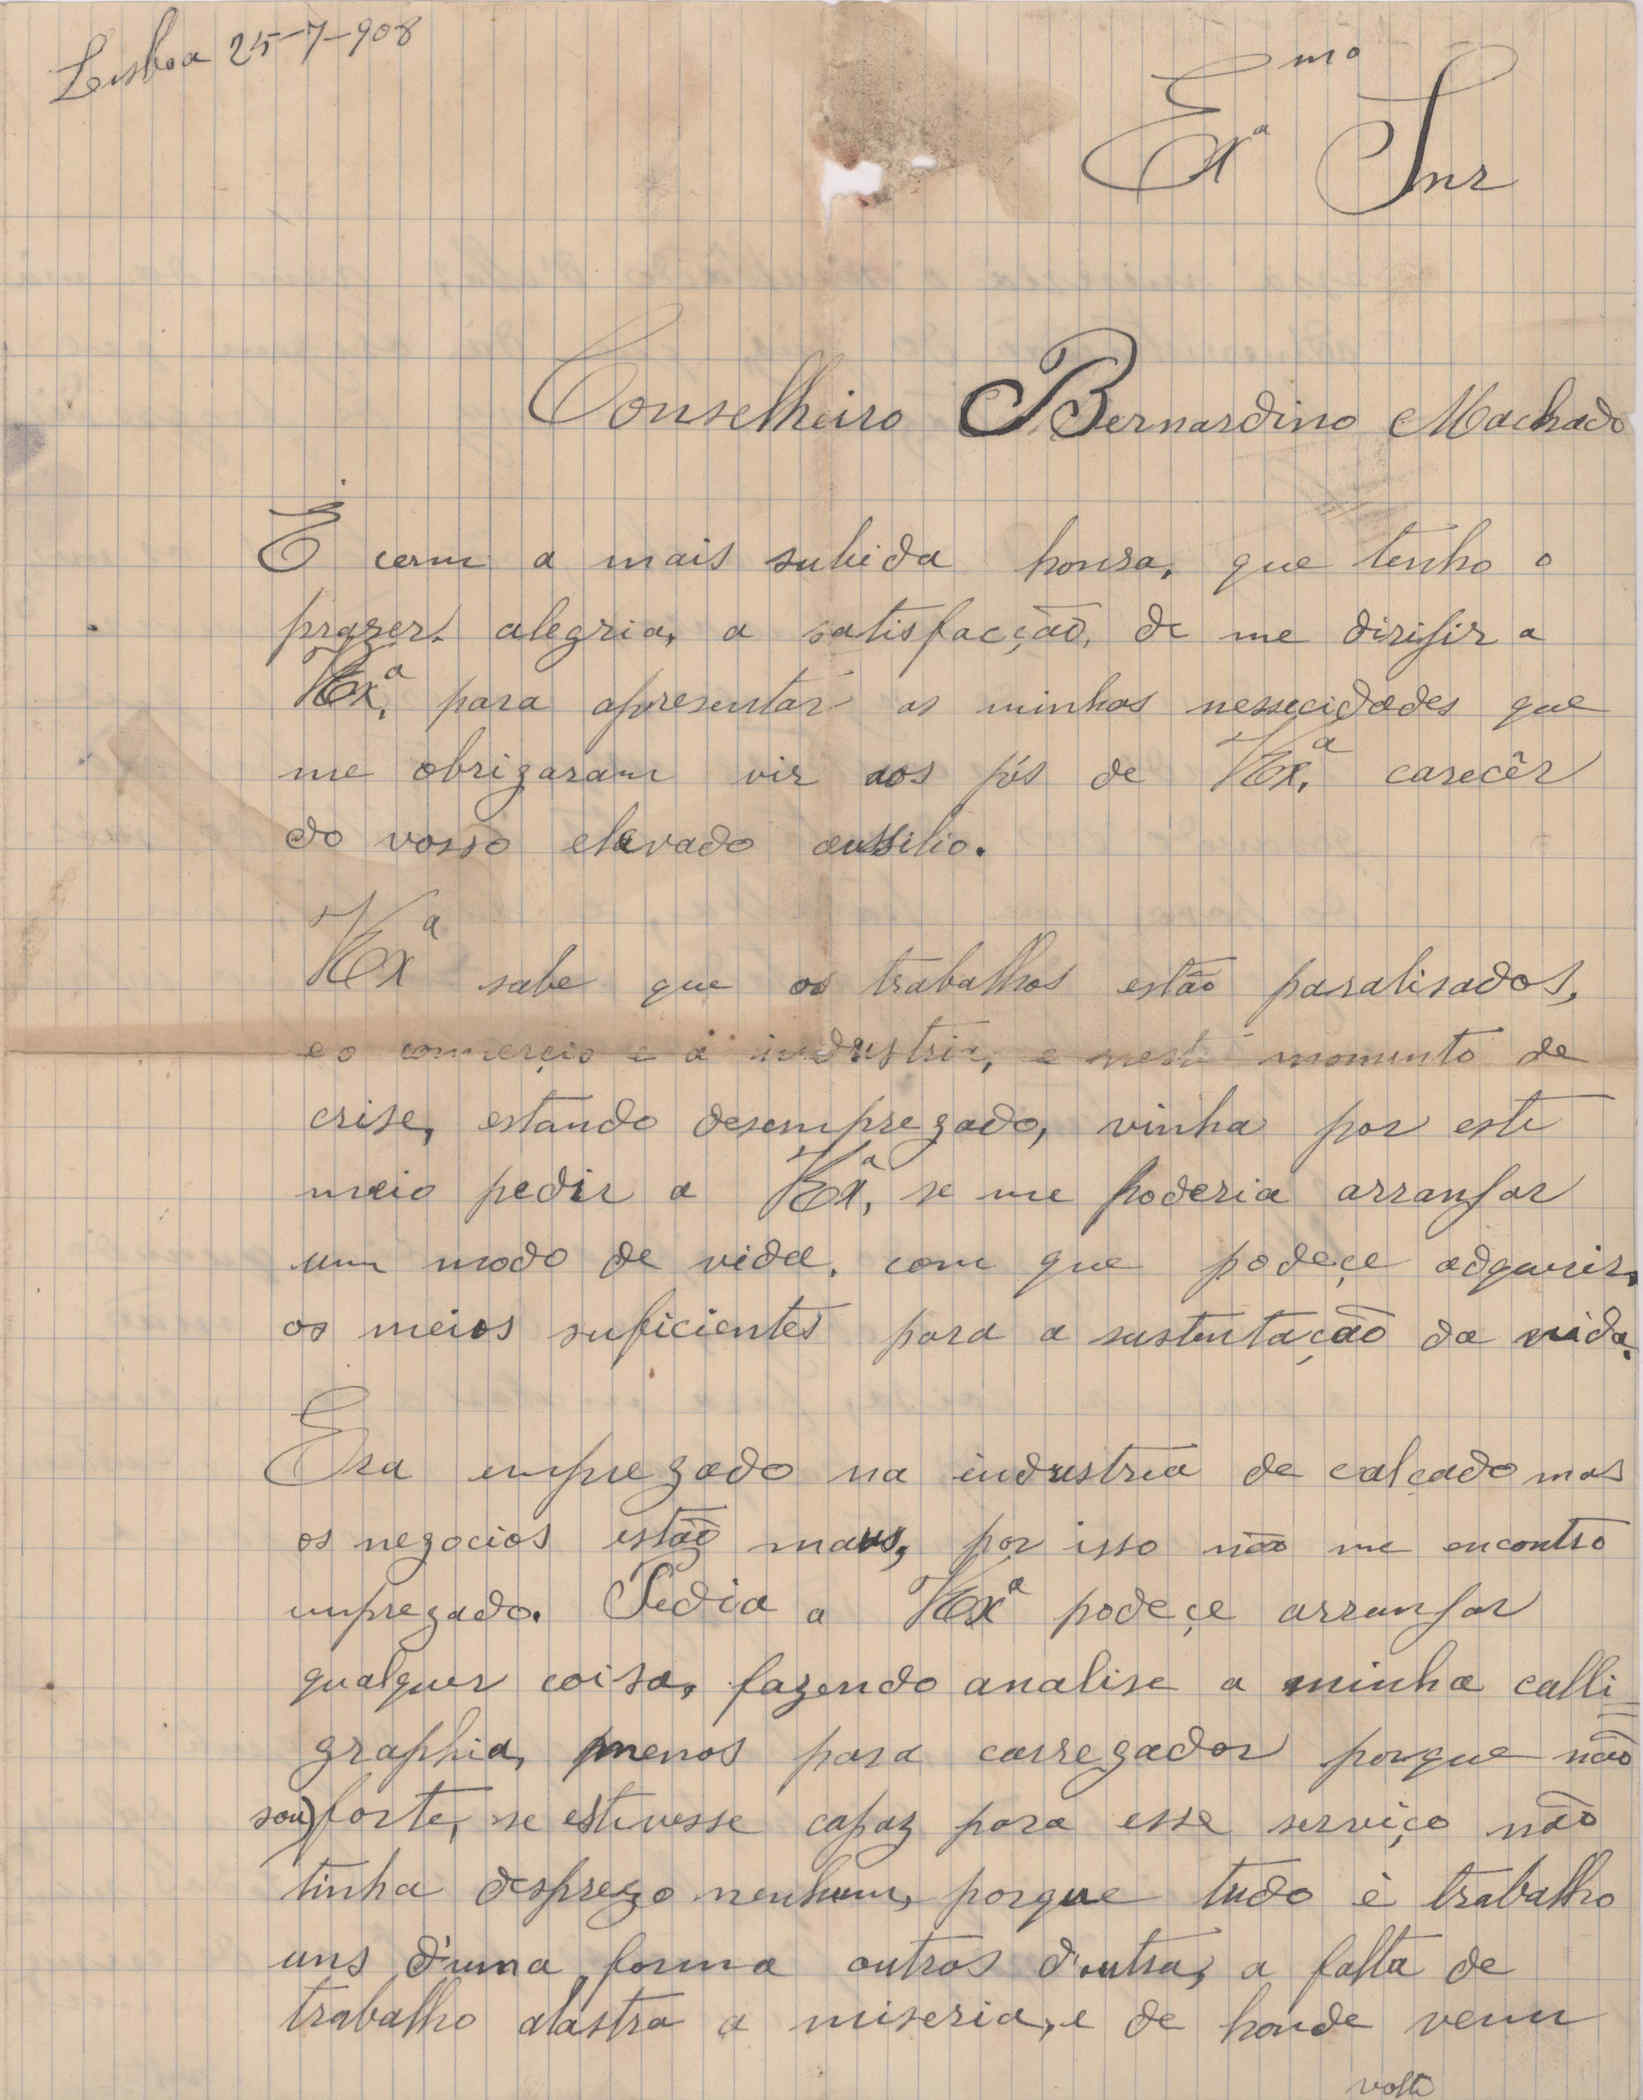 Lisboa 25-7-908
Exª mo Snr
Conselheiro Bernardino Machado
É com a mais subida honra, que tenho o
prazer, alegria, a satisfacção, de me dirijir a
VExª, para apresentar as minhas nessecidades que
me obrigaram vir aos pés de VExª, carecêr
do vosso elevado aussilio.
VExª sabe que os trabalhos estão paralisados,
e o comerçio e a industria, e neste momento de
crise, estando desempregado, vinha por este
meio pedir a VExª, se me poderia arranjar
um modo de vida, com que podeçe adquirir,
os meios suficientes para a sustentação da vida.
Era empregado na industria de calçado mas
os negocios estão maus, por isso não me encontro
empregado. Pedia a VExª podeçe arranjar
qualquer coisa, fazendo analise a minha calli=
graphia, menos para carregador porque não
sou) forte, se estivesse capaz para esse serviço não
tinha desprezo nenhum, porque tudo è trabalho
uns d'uma forma outros d'outra, a falta de
trabalho alastra a miseria, e de honde vem
volte